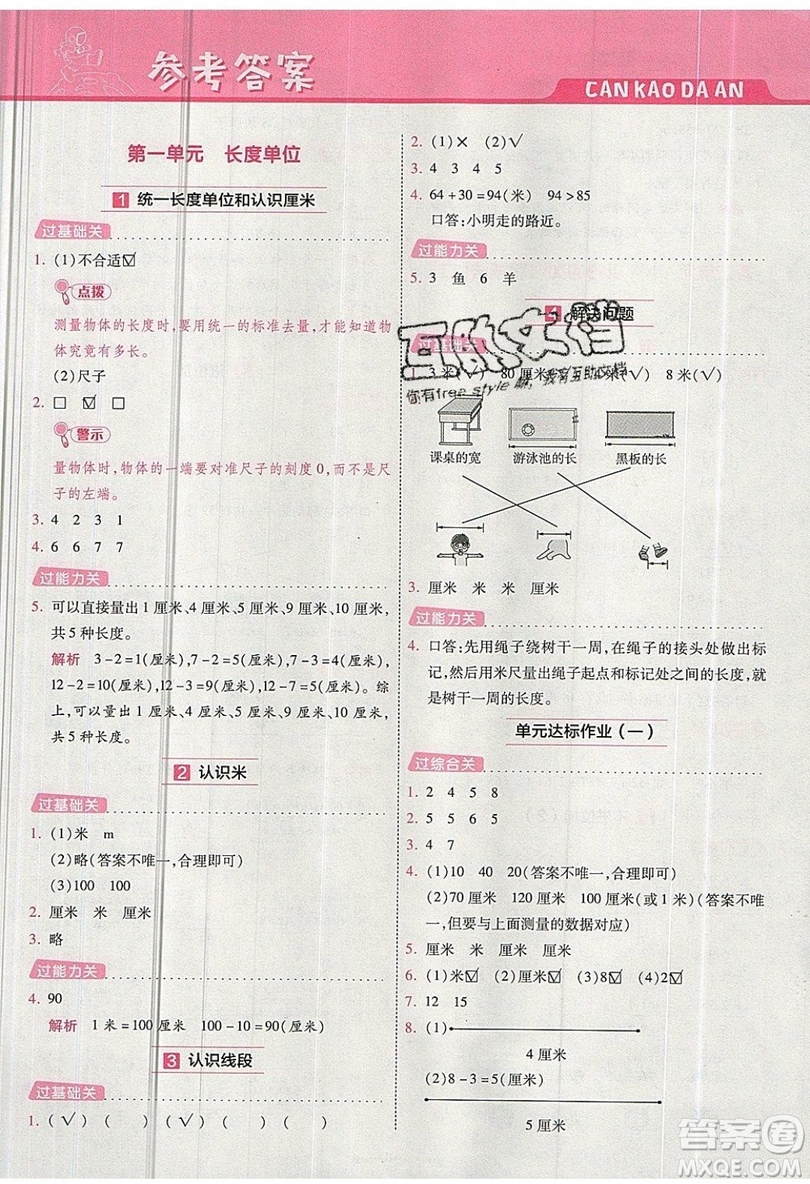 参考答案
CAN KAO DA AN
第一单元 长度单位
1 统一长度单位和认识厘米
过基础关
1. (1)不合适☑
点拨
测量物体的长度时,要用统一的标准去量,才能知道物
体究竟有多长。
(2)尺子
2. □ ☑ □
警示
量物体时,物体的一端要对准尺子的刻度0,而不是尺
子的左端。
3. 4 2 3 1
4. 6 6 7 7
过能力关
5. 可以直接量出1厘米、4厘米、5厘米、9厘米、10厘米,
共5种长度。
解析 3-2=1(厘米),7-2=5(厘米),
12-2=10(厘米),7-3=4(厘米),
12-3=9(厘米),12-7=5(厘米)。综
上,可以量出1厘米、4厘米、5厘米、9厘米、10厘米,
共5种长度。
2 认识米
过基础关
1. (1)米 m
(2)略(答案不唯一,合理即可)
(3)100 100
2. 厘米 米 厘米 厘米
3. 略
过能力关
4. 90
解析 1米=100厘米 100-10=90(厘米)
3 认识线段
过基础关
1. (√) ( ) (√) ( ) ( )
2. (1)× (2)√
3. 4 3 4 5
4. 64+30=94(米) 94>85
口答:小明走的路近。
过能力关
5. 3 鱼 6 羊
4 解决问题
过基础关
1. 3米(√) 80厘米(√) 8米(√)
互助文档
你有free style嘛,我有互助文档
2.
课桌的宽 游泳池的长 黑板的长
3. 厘米 米 米 厘米
过能力关
4. 口答:先用绳子绕树干一周,在绳子的接头处做出标
记,然后用米尺量出绳子起点和标记处之间的长度,就
是树干一周的长度。
单元达标作业(一)
过综合关
1. 2 4 5 8
2. 5 5 6 5
3. 4 7
4. (1)10 40 20(答案不唯一,合理即可)
(2)70厘米 120厘米 100厘米(或1米)(答案不唯
一,但要与上面测量的数据对应)
5. 厘米 厘米 米 厘米
6. (1)米☑ (2)100☑ (3)8☑ (4)2☑
7. 12 15
8. (1)
4厘米
(2)8-3=5(厘米)
5厘米
答案圈
MXQE.COM